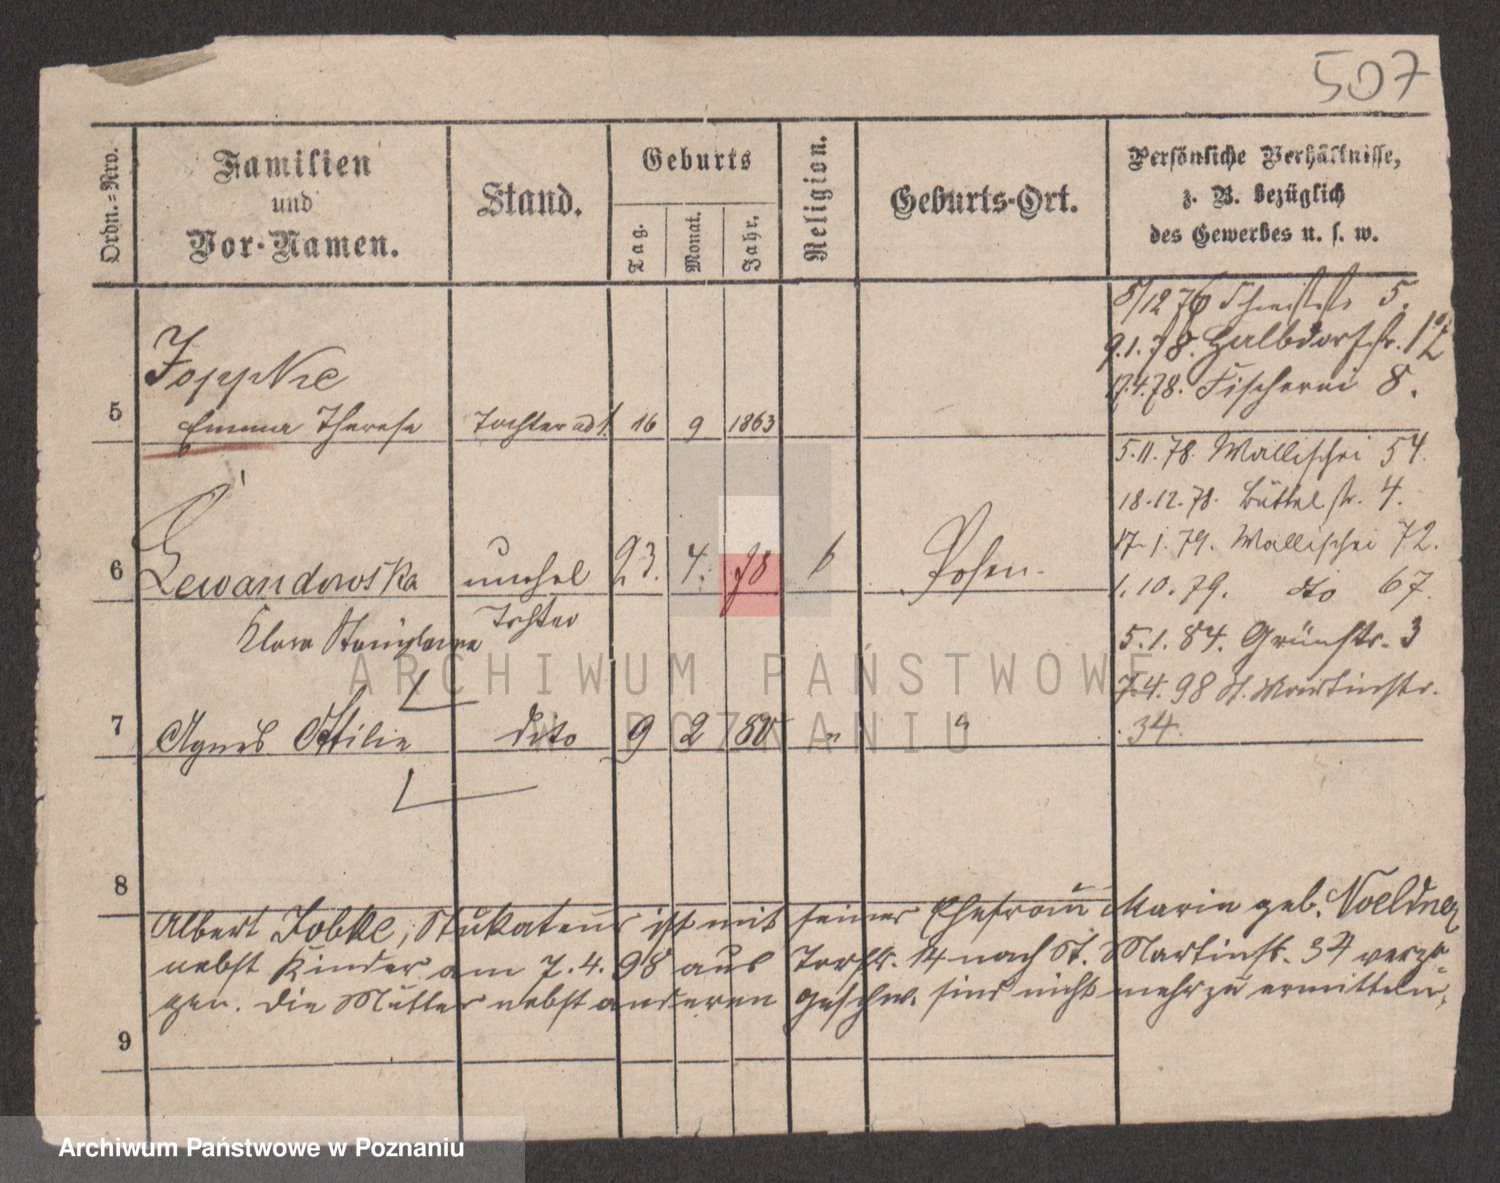 507
Ordn.=Nro.
Familien
und
Vor-Namen.
Stand.
Geburts
Tag.
Monat.
Jahr.
Religion.
Geburts-Ort.
Persönliche Verhältnisse,
z. B. bezüglich
des Gewerbes u. s. w.
8/12 76 5.
9.1.78. Halbdorfstr. 12
17.4.78. Fischerei 8.
Joppke
5 Emma Therese Tochter ad 1. 16 9 1863
5.11.78. Wallischei 54.
18.12.78. Büttelstr. 4.
17.1.79. Wallischei 72.
6 Lewandowska unehel 23. 4. 78 Posen.
1.10.79. dto 67.
Klara Stanislawa Tochter
5.1.84. Grünstr. 3
7.4.98 St. Martinstr.
34.
7 Agnes Ottilie dito 9 2 80 "
8
Albert Jobke, Stukateur ist mit seiner Ehefrau Marie geb. Noeldner
nebst Kinder am 7.4.98 aus Torstr. 14 nach St. Martinstr. 34 verzo
gen. Die Mutter nebst anderen Geschw. sind nicht mehr zu ermitteln.
9
ARCHIWUM PAŃSTWOWE
W POZNANIU
Archiwum Państwowe w Poznaniu